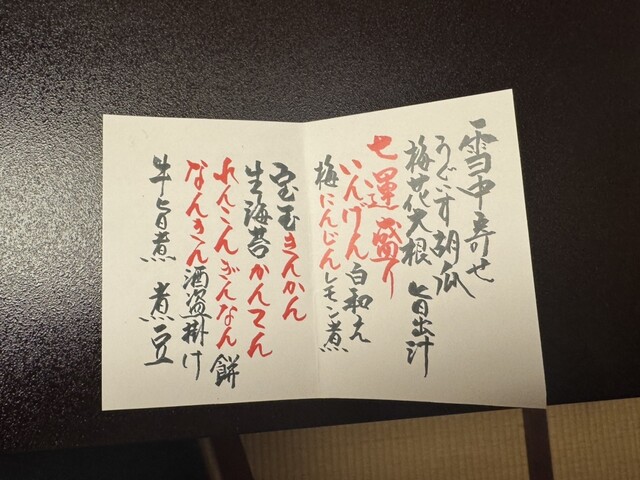 雪中寄せ
うぐいす胡瓜
梅花大根 旨出汁
七運盛り
いんげん白和え
梅にんじんレモン煮
宝玉きんかん
生海苔かんてん
れんこんぎんなん餅
なんきん酒盗掛け
牛旨煮 煮豆